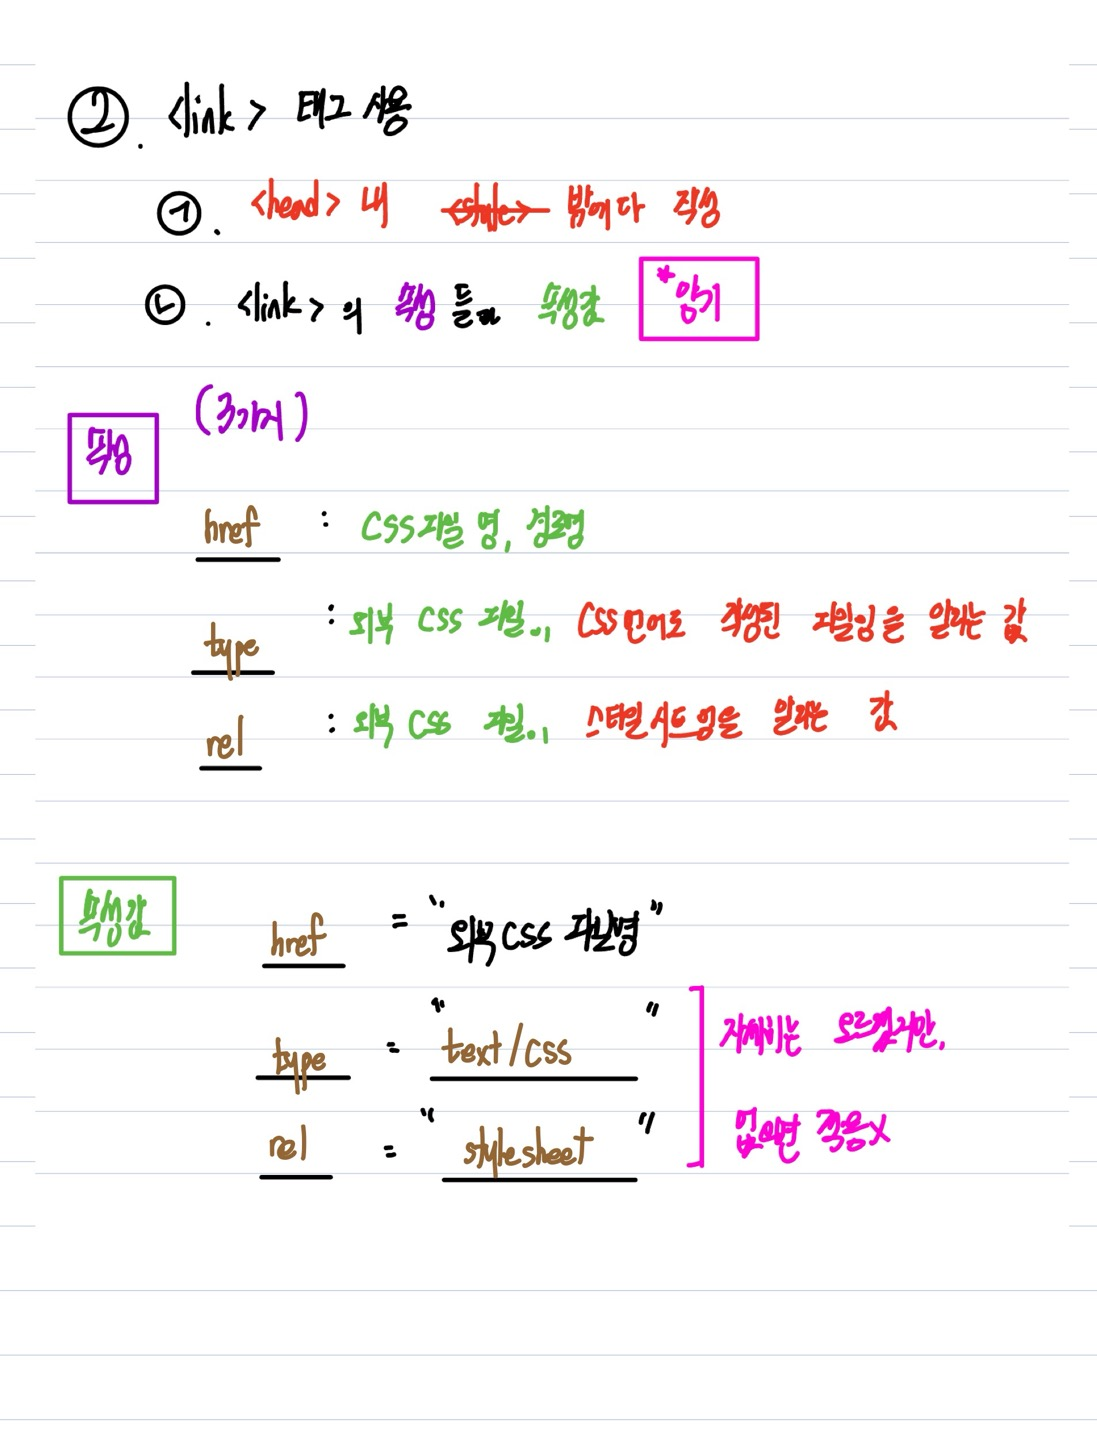 ②. <link> 태그 사용
㉠. <head> 내 <style> 밖에다 작성
㉡. <link>의 속성들과 속성값 *암기
속성 (3가지)
href : CSS파일 명, 경로명
type : 외부 CSS 파일이, CSS언어로 작성된 파일임을 알리는 값
rel : 외부 CSS 파일이, 스타일시트임을 알리는 값
속성값
href = "외부CSS 파일명"
type = "text/css"
rel = "stylesheet"
자세히는 모르겠지만,
없으면 적용x